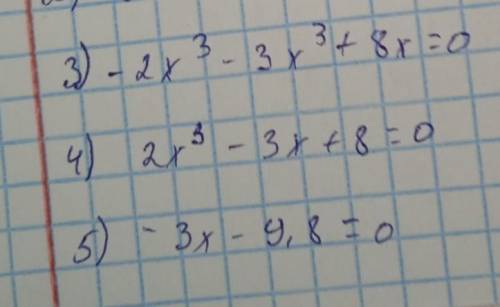 3) - 2x³ - 3x³ + 8x = 0
4) 2x³ - 3x + 8 = 0
5) - 3x - 9,8 = 0